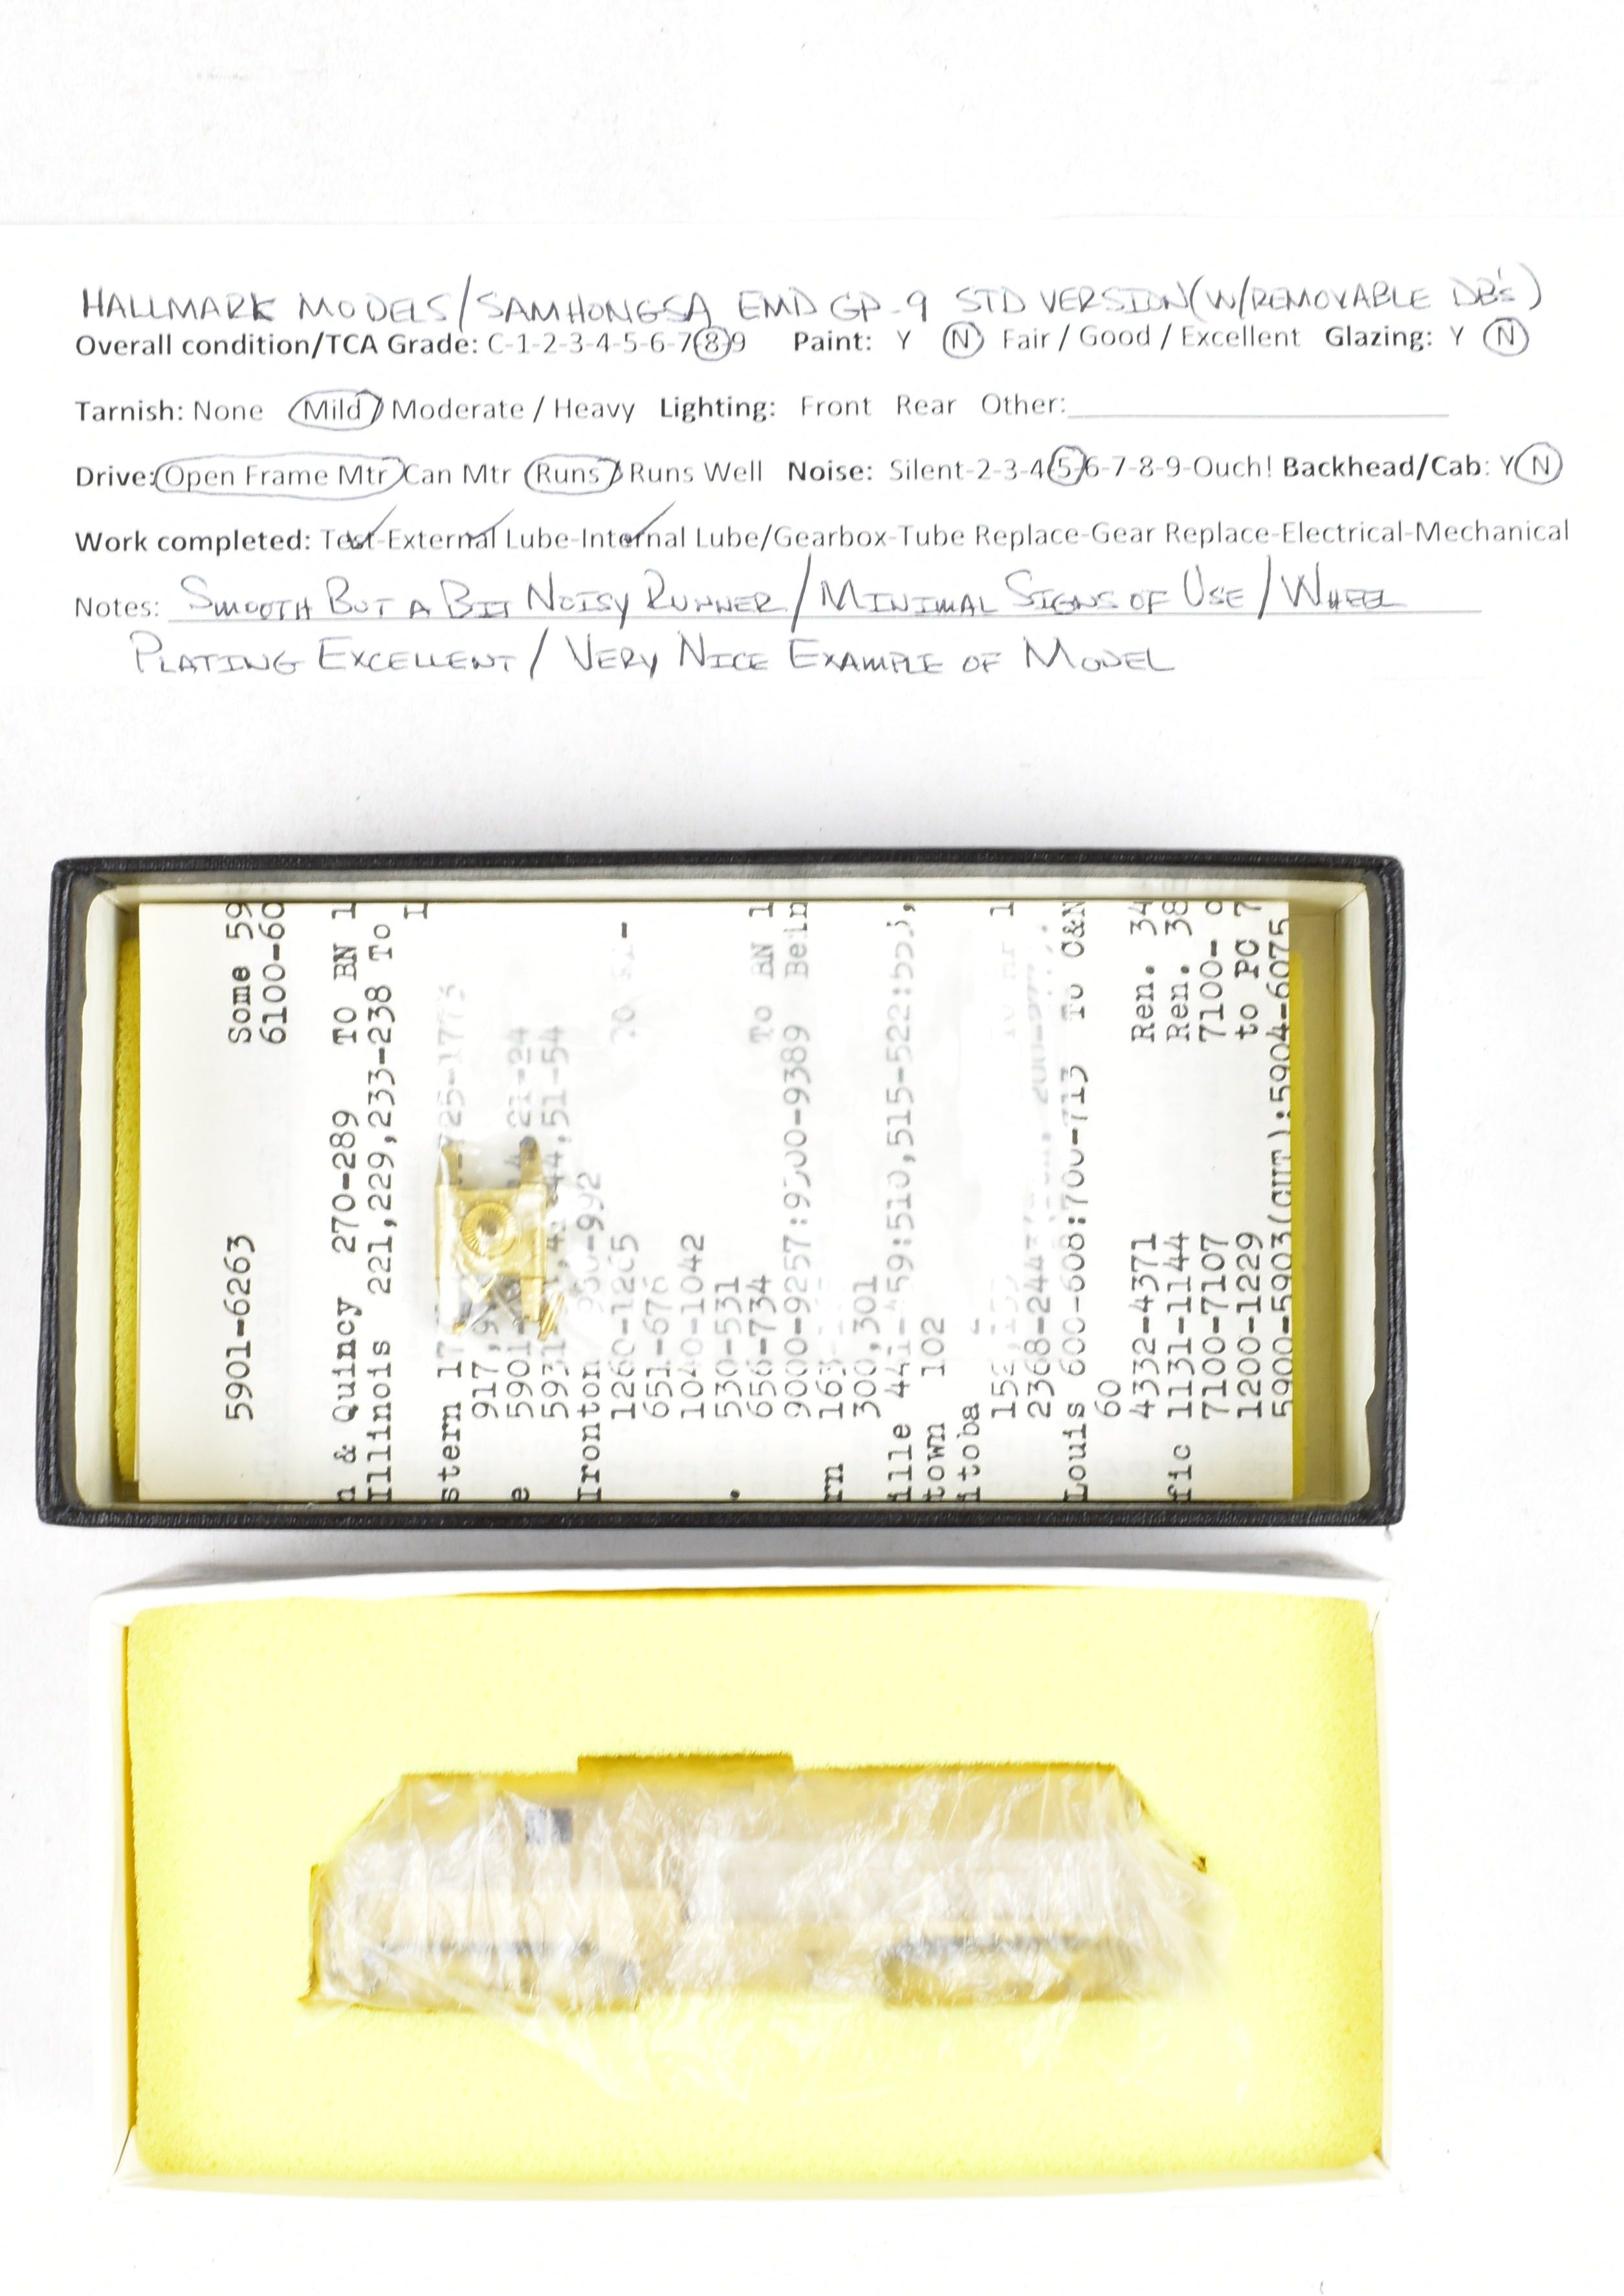 HALLMARK MODELS/SAMHONGSA EMD GP-9 STD VERSION (W/REMOVABLE DB'S)
Overall condition/TCA Grade: C-1-2-3-4-5-6-7-8-9 Paint: Y N Fair / Good / Excellent Glazing: Y N
Tarnish: None Mild / Moderate / Heavy Lighting: Front Rear Other:
Drive: Open Frame Mtr / Can Mtr Runs / Runs Well Noise: Silent-2-3-4-5-6-7-8-9-Ouch! Backhead/Cab: Y N
Work completed: Test-External Lube-Internal Lube/Gearbox-Tube Replace-Gear Replace-Electrical-Mechanical
Notes: SMOOTH BUT A BIT NOISY RUNNER / MINIMAL SIGNS OF USE / WHEEL
PLATING EXCELLENT / VERY NICE EXAMPLE OF MODEL
5901-6263 Some 59
6100-60
n & Quincy 270-289 TO BN 1
Illinois 221,229,233-238 To
stern 17 725-1775
917,9
e 5901- 21-24
5931 44,51-54
Ironton 992
1260-1265
651-676
1040-1042
530-531
656-734 To BN 1
9000-9257:9300-9389 Bein
rn 163
300,301
ille 441-459:510,515-522:553,
town 102
itoba
152,153
2368-244
Louis 600-608:700-713 To C&N
60
4332-4371 Ren. 34
fic 1131-1144 Ren. 38
7100-7107 7100-
1200-1229 to PC 7
5900-5903(CUT):5904-6075